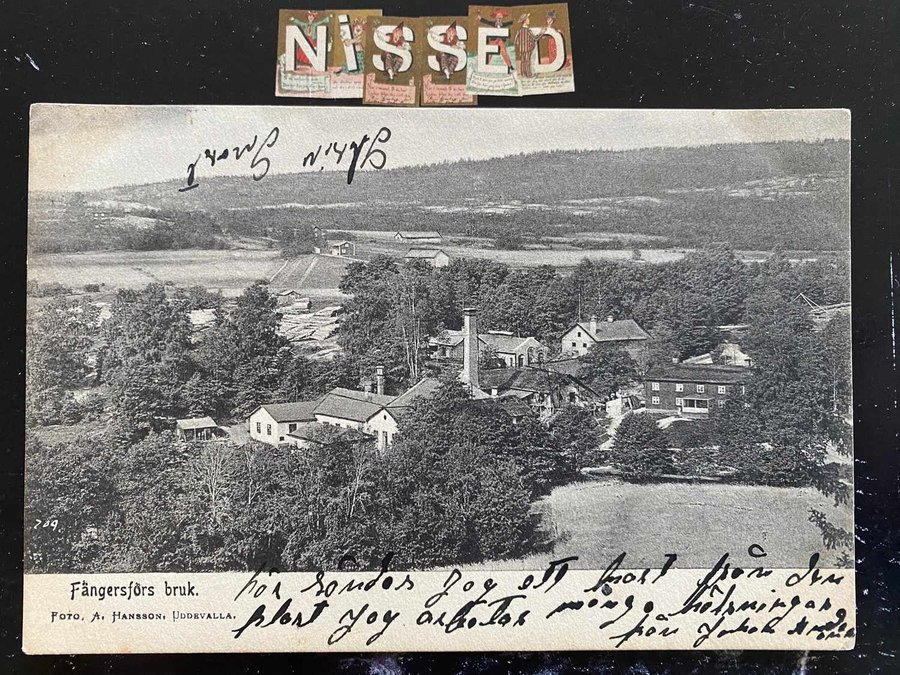 NISSED
Skriv Snart
709.
Fängersförs bruk.
Foto, A. Hansson, Uddevalla.
här sänder jag ett kort från den
plats jag arbetar många hälsningar
från Johan